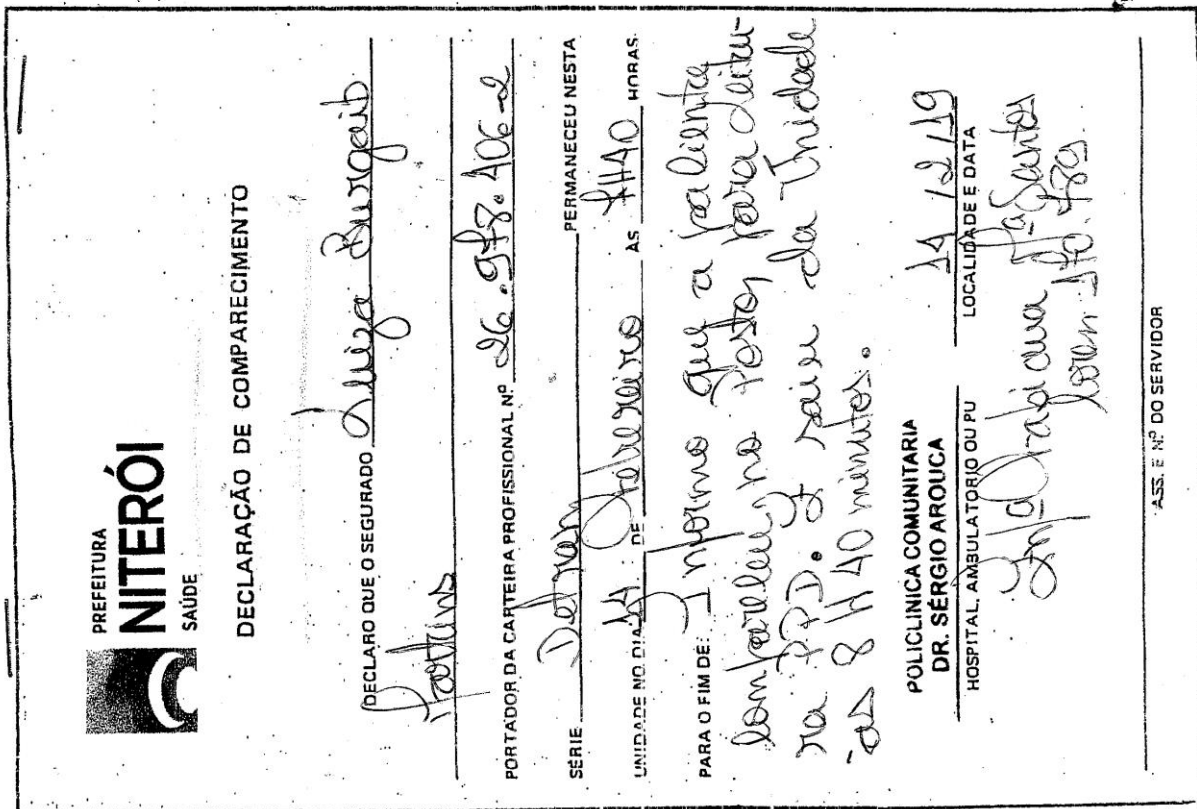 PREFEITURA
NITERÓI
SAÚDE
DECLARAÇÃO DE COMPARECIMENTO
DECLARO QUE O SEGURADO Luiza
PORTADOR DA CARTEIRA PROFISSIONAL Nº 26.978.406-2
SÉRIE Detran PERMANECEU NESTA
UNIDADE NO DIA 14 DE Fevereiro ÀS 7H40 HORAS.
PARA O FIM DE: Informo que a paciente
compareceu no Posto, para leitu-
ra PPD. E saiu da Unidade
às 8 H 40 minutos.
POLICLINICA COMUNITARIA
DR. SÉRGIO AROUCA
14 /2/19
HOSPITAL, AMBULATÓRIO OU PU
LOCALIDADE E DATA
Fabiana Santos
Coren 789
ASS. E Nº DO SERVIDOR